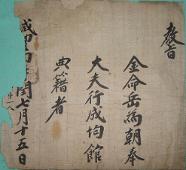 敎旨
金命岳爲朝奉
大夫行成均館
典籍者
咸豊四年閏七月十五日